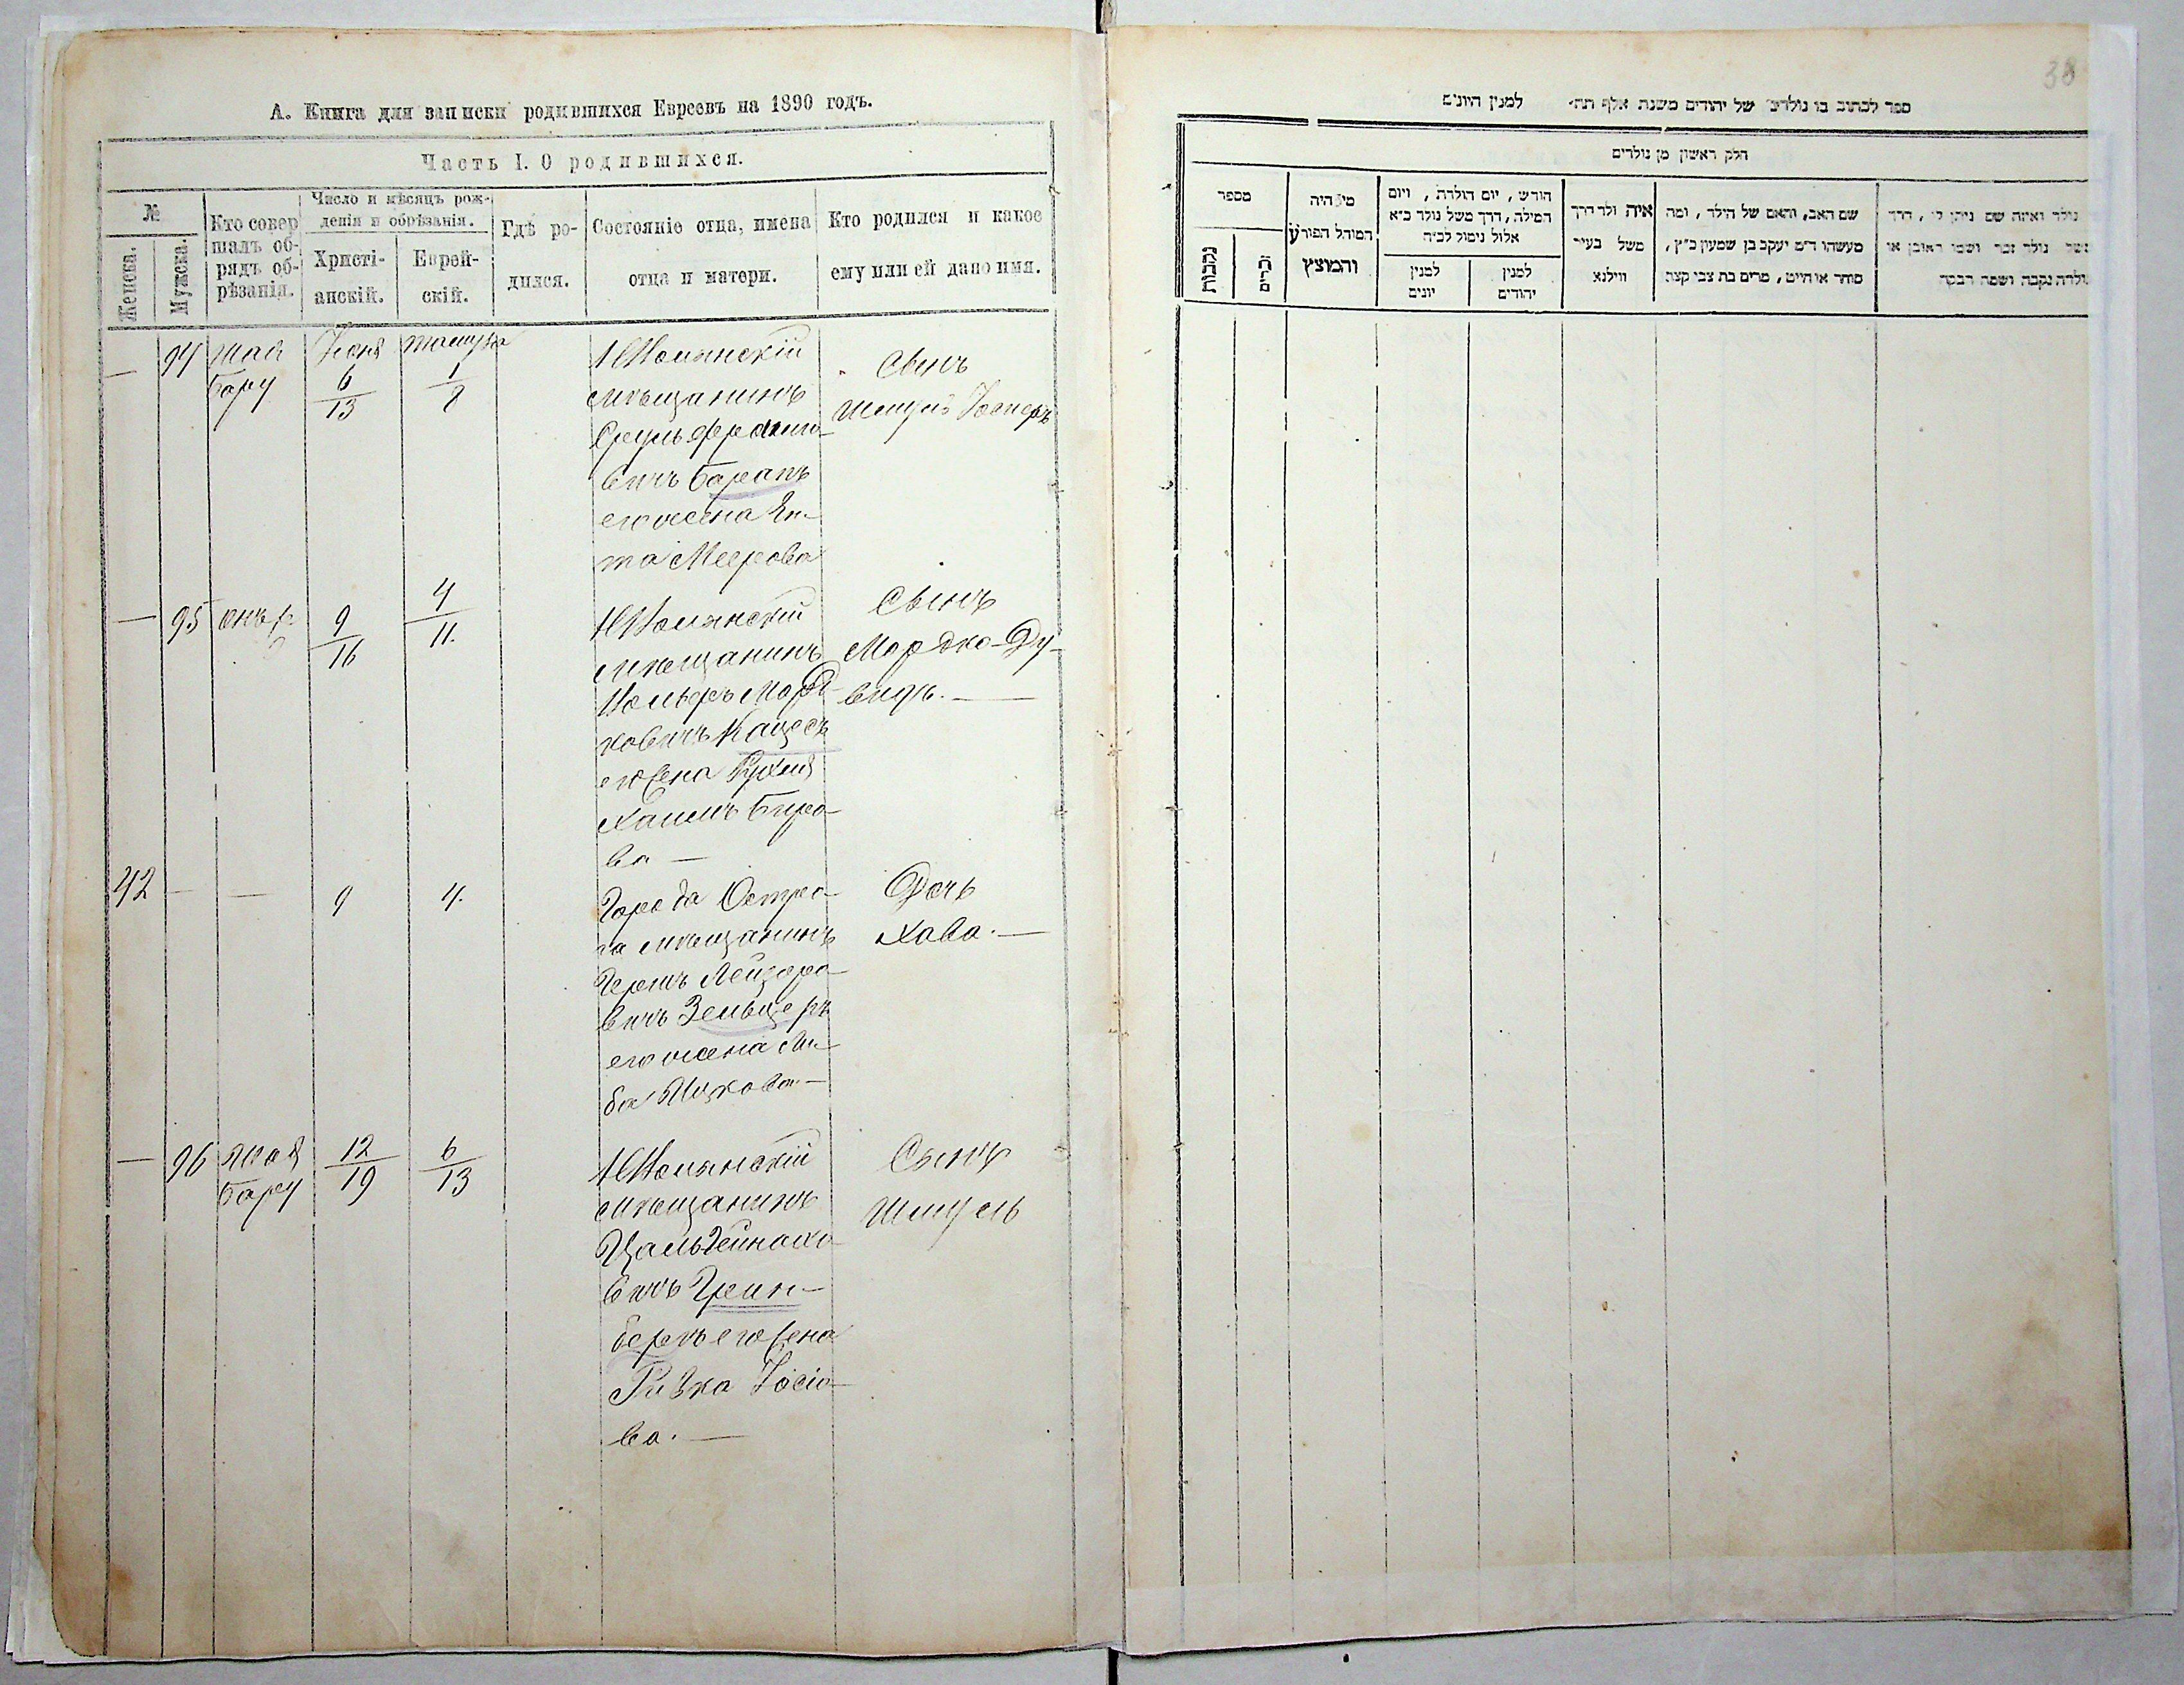 А. Книга для записки родившихся Евреевъ на 1890 годъ.
Часть I. О родившихся.
№
Женска.
Мужска.
Кто совер
шалъ об-
рядъ об-
рѣзанія.
Число и мѣсяцъ рож-
денія и обрѣзанія.
Христі-
анскій.
Еврей-
скій.
Гдѣ ро-
дился.
Состояніе отца, имена
отца и матери.
Кто родился и какое
ему или ей дано имя.
— 94
Бару
Іюня
6
13
1
8
мѣщанинъ
Сруль
вичъ Баранъ
его жена Эн-
та Меерова
Сынъ
— 95
9
16
4
11.
мѣщанинъ
Морд-
ковичъ Кацесъ
его жена Рухля
Хаимъ Беро-
ва —
Сынъ
Мордко-Ду-
видъ. —
42 — —
9
4.
Города Остро-
га мѣщанинъ
Гершъ Лейзоро-
вичъ Зельцеръ
его жена Ли-
ба Ицкова —
Дочь
Хава. —
— 96
Бару
12
19
6
13
мѣщанинъ
вичъ Грин-
бергъ его жена
Ривка Іосіо-
ва. —
Сынъ
Шмуель
38
ספר לכתוב בו נולדים של יהודים משנת אלף תת׳ למנין היונים
חלק ראשון מן נולדים
מספר
נקבות
זכרים
מי היה
המוהל הפורע
והמוצץ
חודש, יום הולדת, ויום
המילה, דרך משל נולד כ״א
אלול נימול לב״ה
למנין
יונים
למנין
יהודים
איה ולד דרך
משל בעיר
ווילנא
שם האב, והאם של הילד, ומה
מעשהו ד״מ יעקב בן שמעון כ״ץ,
סוחר או חייט, מרים בת צבי קצת
נולד ואיזה שם ניתן לו, דרך
משל נולד זכר ושמו ראובן או
נולדה נקבה ושמה רבקה